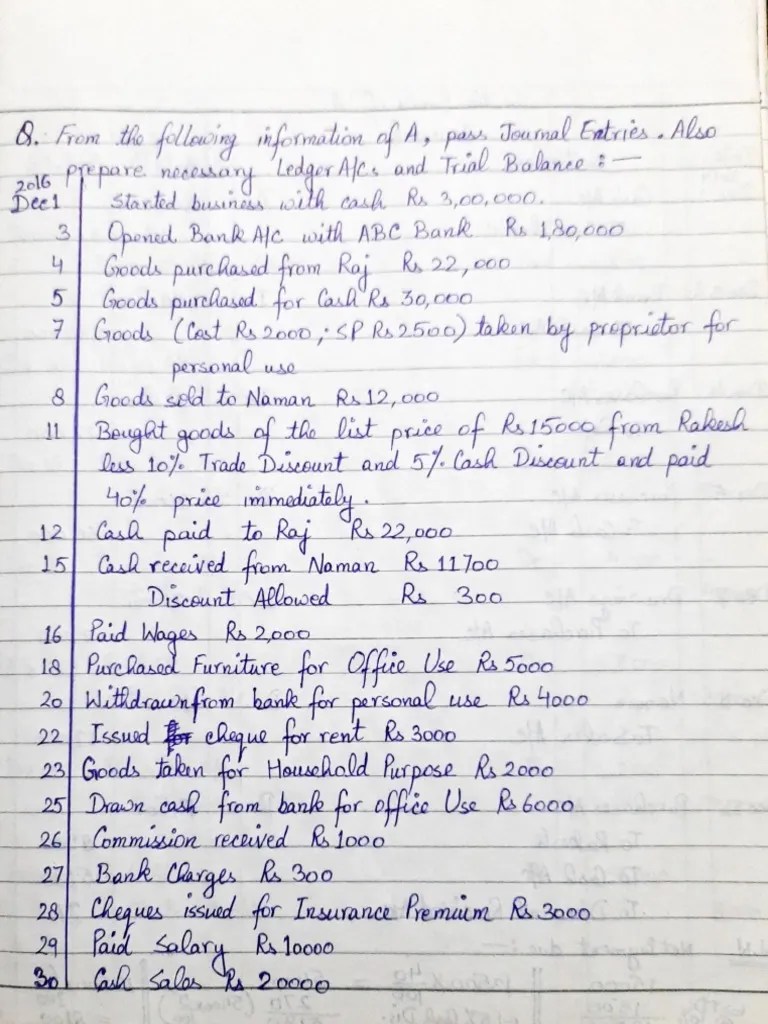 Q. From the following information of A, pass Journal Entries. Also
prepare necessary Ledger A/Cs and Trial Balance :—
2016
Dec 1 Started business with cash Rs 3,00,000.
3 Opened Bank A/c with ABC Bank Rs 1,80,000
4 Goods purchased from Raj Rs 22,000
5 Goods purchased for Cash Rs 30,000
7 Goods (Cost Rs 2000, SP Rs 2500) taken by proprietor for
personal use
8 Goods sold to Naman Rs 12,000
11 Bought goods of the list price of Rs 15000 from Rakesh
less 10% Trade Discount and 5% Cash Discount and paid
40% price immediately.
12 Cash paid to Raj Rs 22,000
15 Cash received from Naman Rs 11700
Discount Allowed Rs 300
16 Paid Wages Rs 2,000
18 Purchased Furniture for Office Use Rs 5000
20 Withdrawn from bank for personal use Rs 4000
22 Issued cheque for rent Rs 3000
23 Goods taken for Household Purpose Rs 2000
25 Drawn cash from bank for office Use Rs 6000
26 Commission received Rs 1000
27 Bank Charges Rs 300
28 Cheques issued for Insurance Premium Rs. 3000
29 Paid Salary Rs 10000
30 Cash Sales Rs 20000